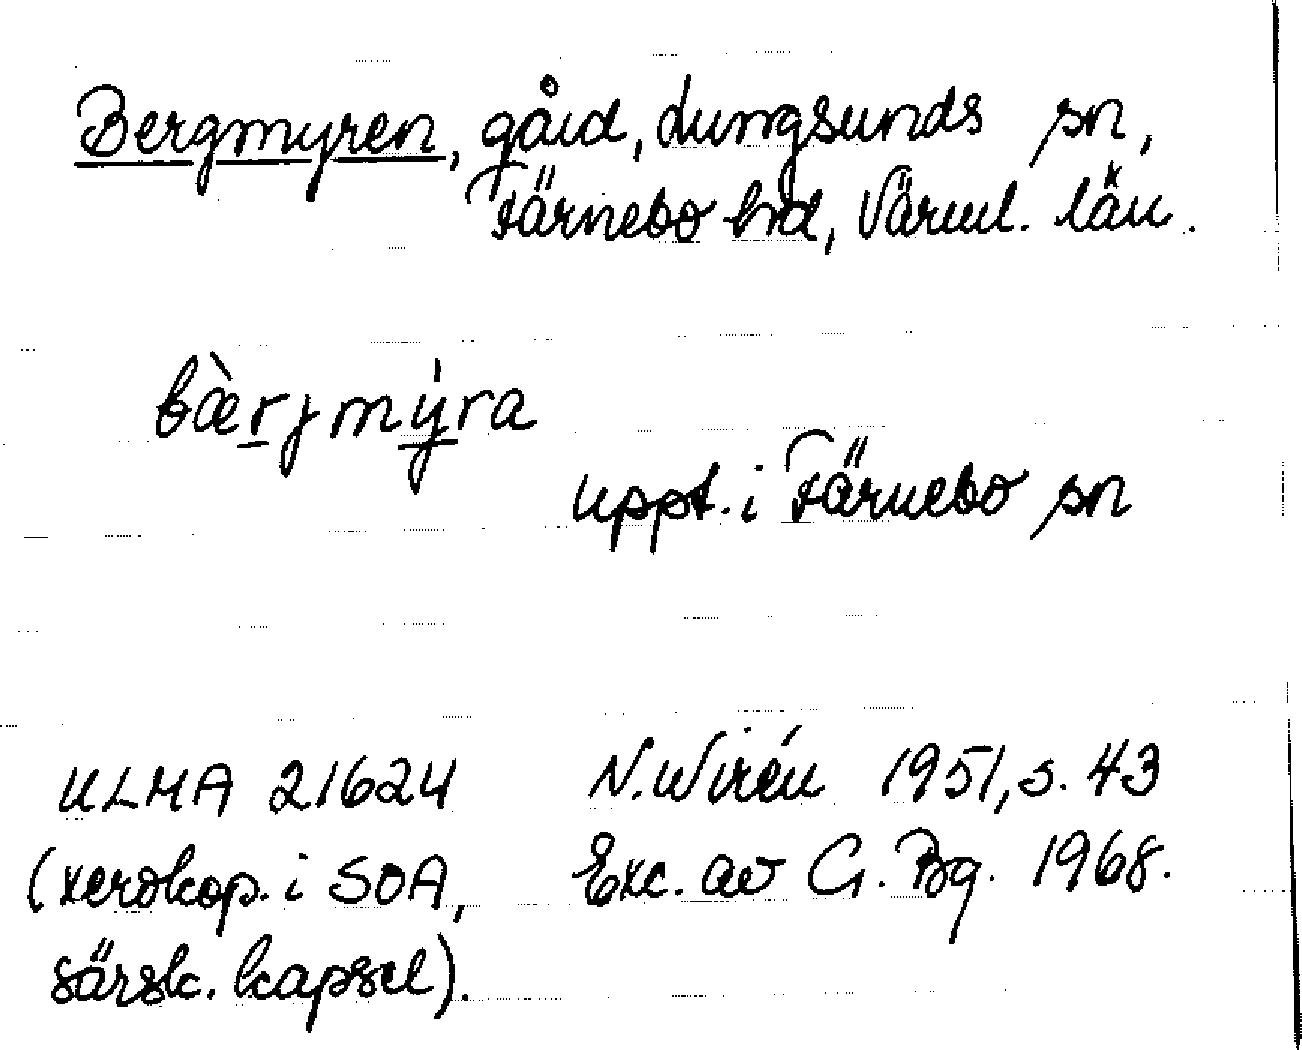 Bergmyren, gård, Lungsunds sn,
Färnebo hd, Värml. län.
bæ̀rjmýra
uppt. i Färnebo sn
ULMA 21624 N. Wirén 1951, s. 43
(xerokop. i SOA, Exc. av G. Bg. 1968.
särsk. kapsel).